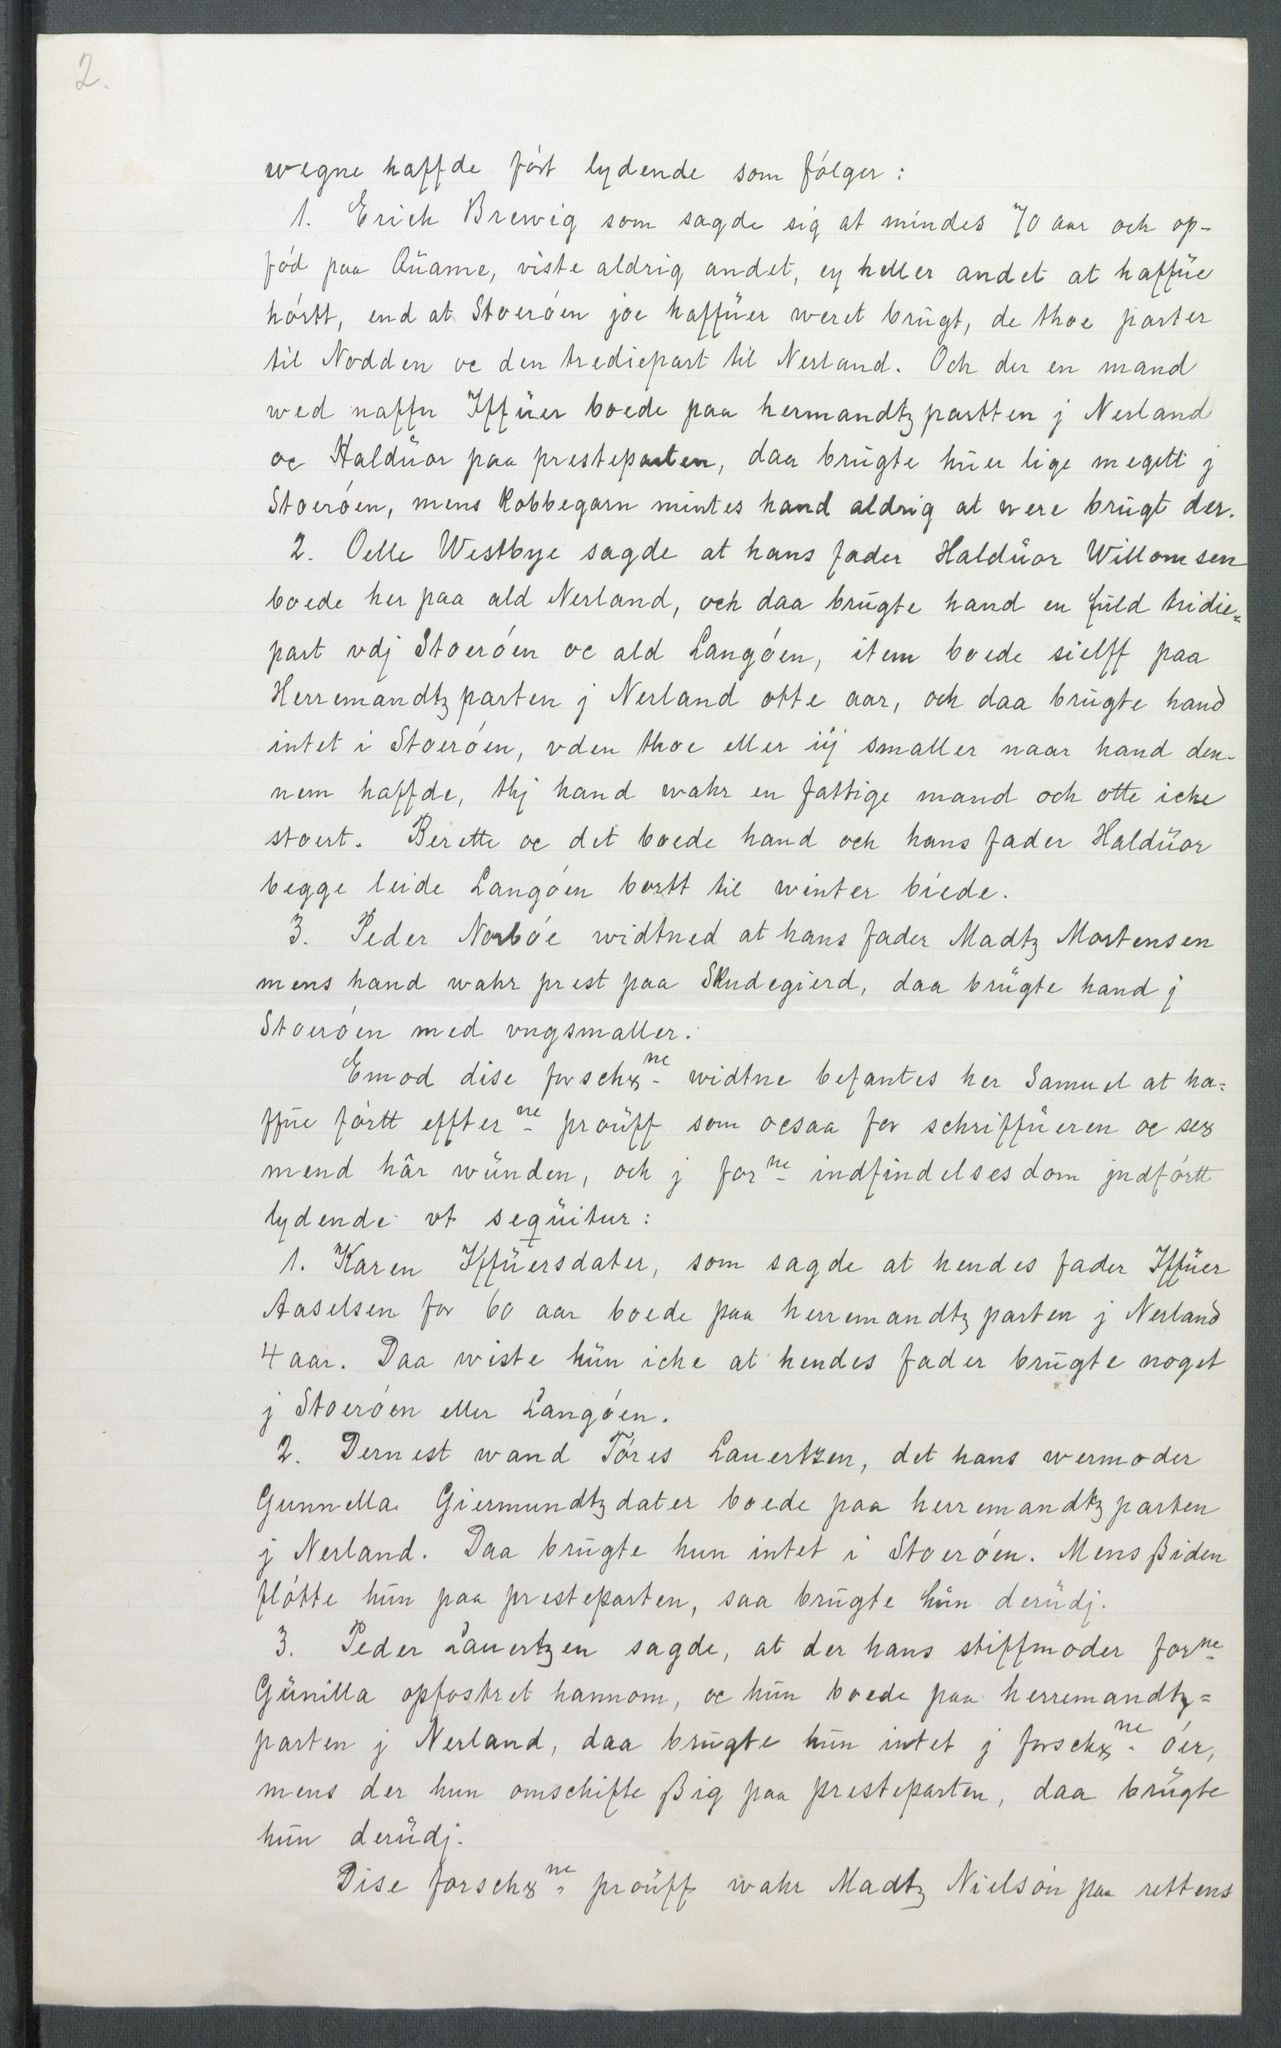 2.
wegne haffde fört lydende som fölger:
1. Erich Brewig som sagde sig at mindes 70 aar och op-
föd paa Qüame, viste aldrig andet, ey heller andet at haffüe
hörtt, end at Stoeröen joe haffüer weret brügt, de thoe parter
til Nodden oc den trediepart til Nerland. Och der en mand
wed naffn Iffüer boede paa hermandtz partten j Nerland
oc Haldüor paa presteparten, daa brügte huer lige megett j
Stoeröen, mens Kobbegarn mintes hand aldrig at were brügt der.
2. Oelle Westbye sagde at hans fader Haldüor Willomsen
boede her paa ald Nerland, och daa brügte hand en fuld tridie-
part vdj Stoeröen oc ald Langöen, item boede sielff paa
Herremandtz parten j Nerland otte aar, och daa brügte hand
intet i Stoeröen, vden thoe eller iij smaller naar hand den-
nem haffde, thj hand wahr en fattige mand och otte icke
stoert. Berette oc det boede hand och hans fader Haldüor
begge leide Langöen bortt til winter biede.
3. Peder Norböe widtned at hans fader Madtz Mortensen
mens hand wahr prest paa Skudegierd, daa brügte hand j
Stoeröen med vngsmaller.
Emod dise forschr ne widtne befantes her Samuel at ha-
ffüe förtt effter ne proüff som ocsaa for schriffüeren oc sex
mend hâr wünden, och j for ne indfindelsesdom jndförtt
lydende vt seqüitur:
1. Karen Iffüersdater, som sagde at hendes fader Iffüer
Aaselsen for 60 aar boede paa herremandtz parten j Nerland
4 aar. Daa wiste hün icke at hendes fader brügte noget
j Stoeröen eller Langöen.
2. Dernest wand Töres Lauertzen, det hans wermoder
Gunnella Giermundtzdater boede paa herremandtz parten
j Nerland. Daa brügte hun intet i Stoeröen. Mens ßiden
flötte hün paa presteparten, saa brügte hün derüdj.
3. Peder Lauertzen sagde, at der hans stiffmoder for ne
Günilla opfostret hannom, oc hün boede paa herremandtz-
parten j Nerland, daa brügte hün intet j forschr ne öer,
mens der hun omschifte ßig paa presteparten, daa brügte
hün derüdj.
Dise forschr ne proüff wahr Madtz Nielsön paa rettens